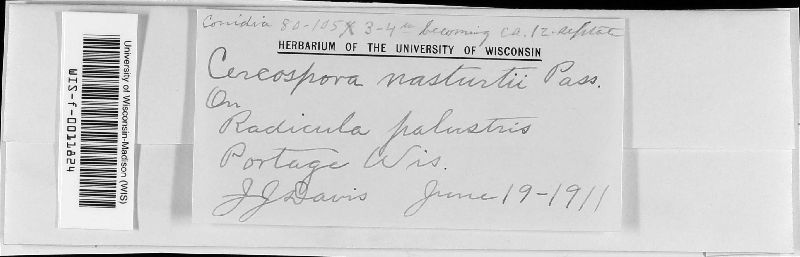 Conidia 80-105 X 3-4 µ becoming ca. 12-septate
HERBARIUM OF THE UNIVERSITY OF WISCONSIN
Cercospora nasturtii Pass.
On
Radicula palustris
Portage Wis.
J J Davis June 19-1911
University of Wisconsin-Madison (WIS)
WIS-f-0011824